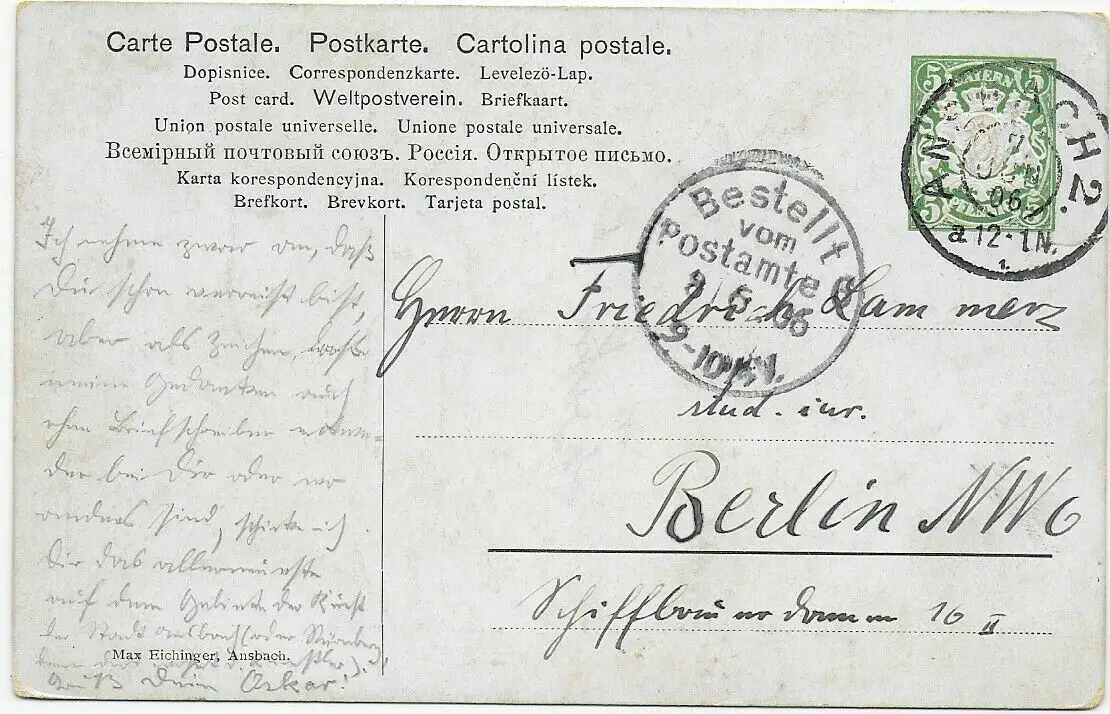 Carte Postale. Postkarte. Cartolina postale.
Dopisnice. Correspondenzkarte. Levelezö-Lap.
Post card. Weltpostverein. Briefkaart.
Union postale universelle. Unione postale universale.
Всемірный почтовый союзъ. Россія. Открытое письмо.
Karta korespondencyjna. Korespondenční lístek.
Brefkort. Brevkort. Tarjeta postal.
5 BAYERN 5
5 PFENNIG 5
ANSBACH 2.
06
a.12-1N.
1.
Bestellt
vom
Postamte 6
6 06
9-10 V.
Ich nehme zwar an, daß
Du schon verreist bist,
aber als Zeichen,
meine Gedanken auch
ohne Briefschreiben
der bei Dir oder wo
anders sind, schicke ich
Dir das allerneueste
auf dem Gebiete der Kunst
der Stadt Ansbach (oder Nürnberg,
Gruß Dein Oskar!
Max Eichinger, Ansbach.
Herrn Friedrich Lammerz
stud. iur.
Berlin NW6
Schiffbauerdamm 16 II